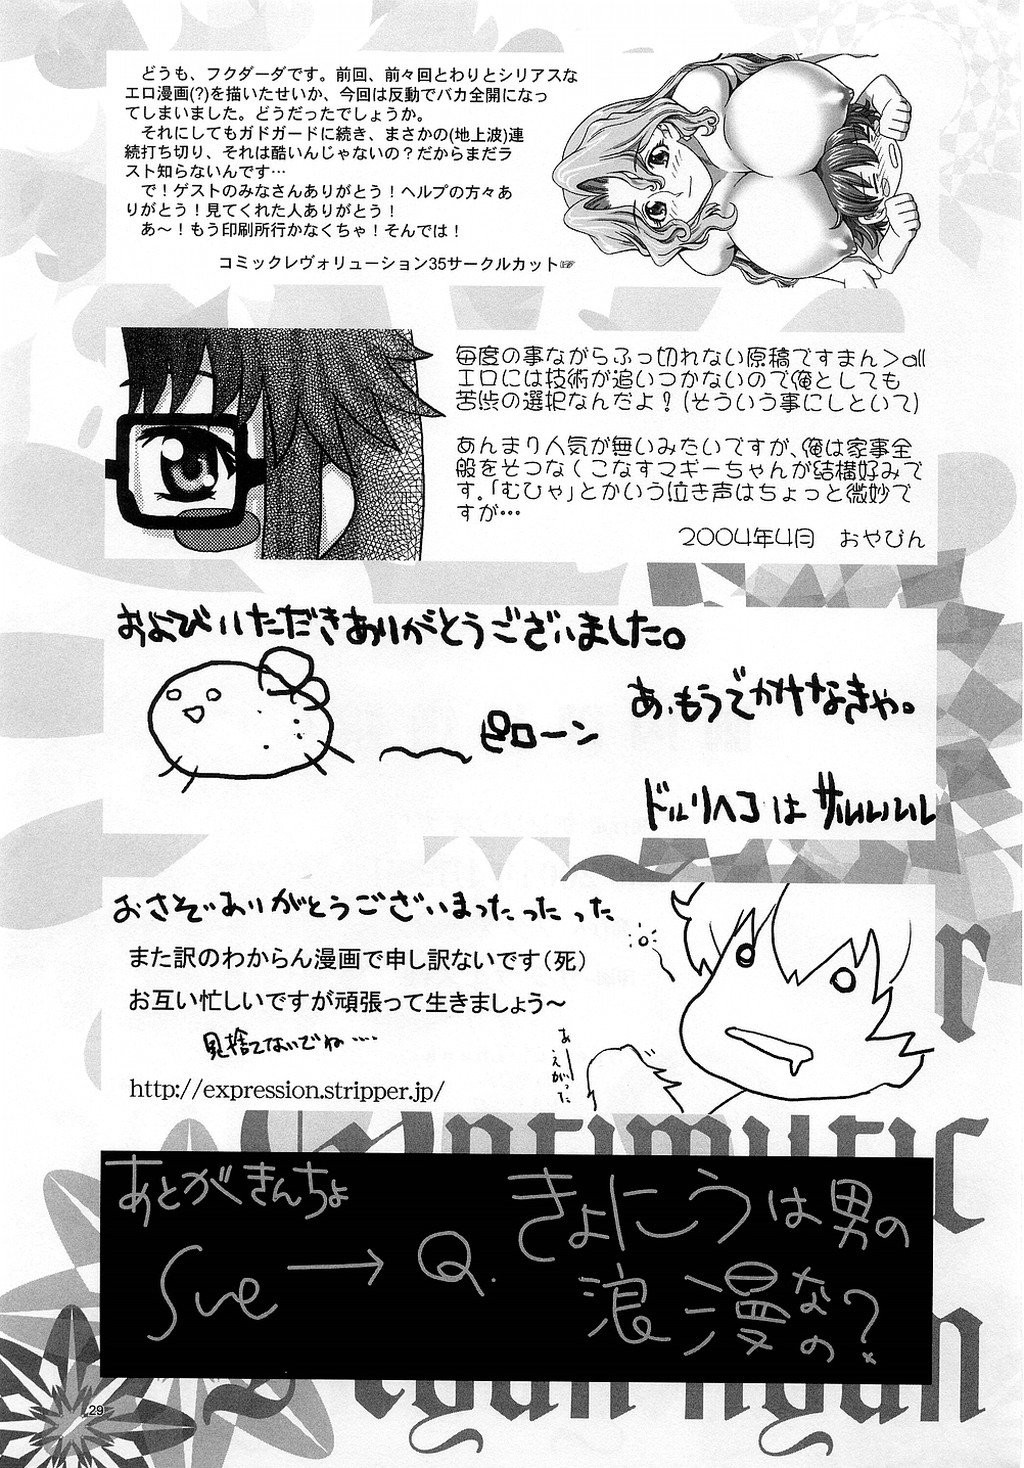 どうも、フクダーダです。前回、前々回とわりとシリアスな
エロ漫画(?)を描いたせいか、今回は反動でバカ全開になっ
てしまいました。どうだったでしょうか。
それにしてもガドガードに続き、まさかの(地上波)連
続打ち切り、それは酷いんじゃないの？だからまだラ
スト知らないんです…
で！ゲストのみなさんありがとう！ヘルプの方々あ
りがとう！見てくれた人ありがとう！
あ〜！もう印刷所行かなくちゃ！そんでは！
コミックレヴォリューション35サークルカット☞
毎度の事ながらふっ切れない原稿ですまん＞all
エロには技術が追いつかないので俺としても
苦渋の選択なんだよ？(そういう事にしといて)
あんまり人気が無いみたいですが、俺は家事全
般をそつなくこなすマギーちゃんが結構好みで
す。「むひゃ」とかいう泣き声はちょっと微妙で
すが…
2004年4月　おやびん
およびいただきありがとうございました。
あ、もうでかけなきゃ。
ピローン
ドルリヘコは サルルルルル
おさそいありがとうございまったったった
また訳のわからん漫画で申し訳ないです（死）
お互い忙しいですが頑張って生きましょう〜
見捨てないでね‥‥
あーえがった
http://expression.stripper.jp/
あとがきんちょ
Sue → Q.
きょにうは男の
浪漫なの？
29